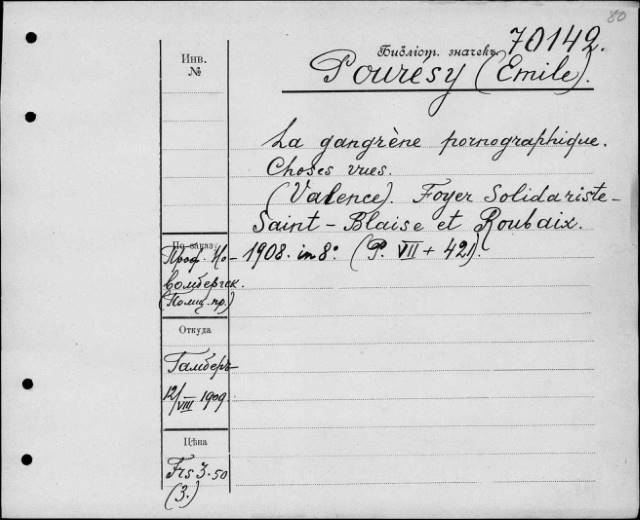 80
Библіот. значекъ 70142.
Инв.
№
Pourésy (Emile).
La gangrène pornographique.
Choses vues.
(Valence). Foyer Solidariste-
Saint-Blaise et Roubaix.
1908. in 8° (P. VII + 421).
По заказ.
Проф. Но-
вомбергск.
(Полиц. пр.)
Откуда
Гамберъ
12/VIII 1909.
Цѣна
Frs 3.50
(3.)